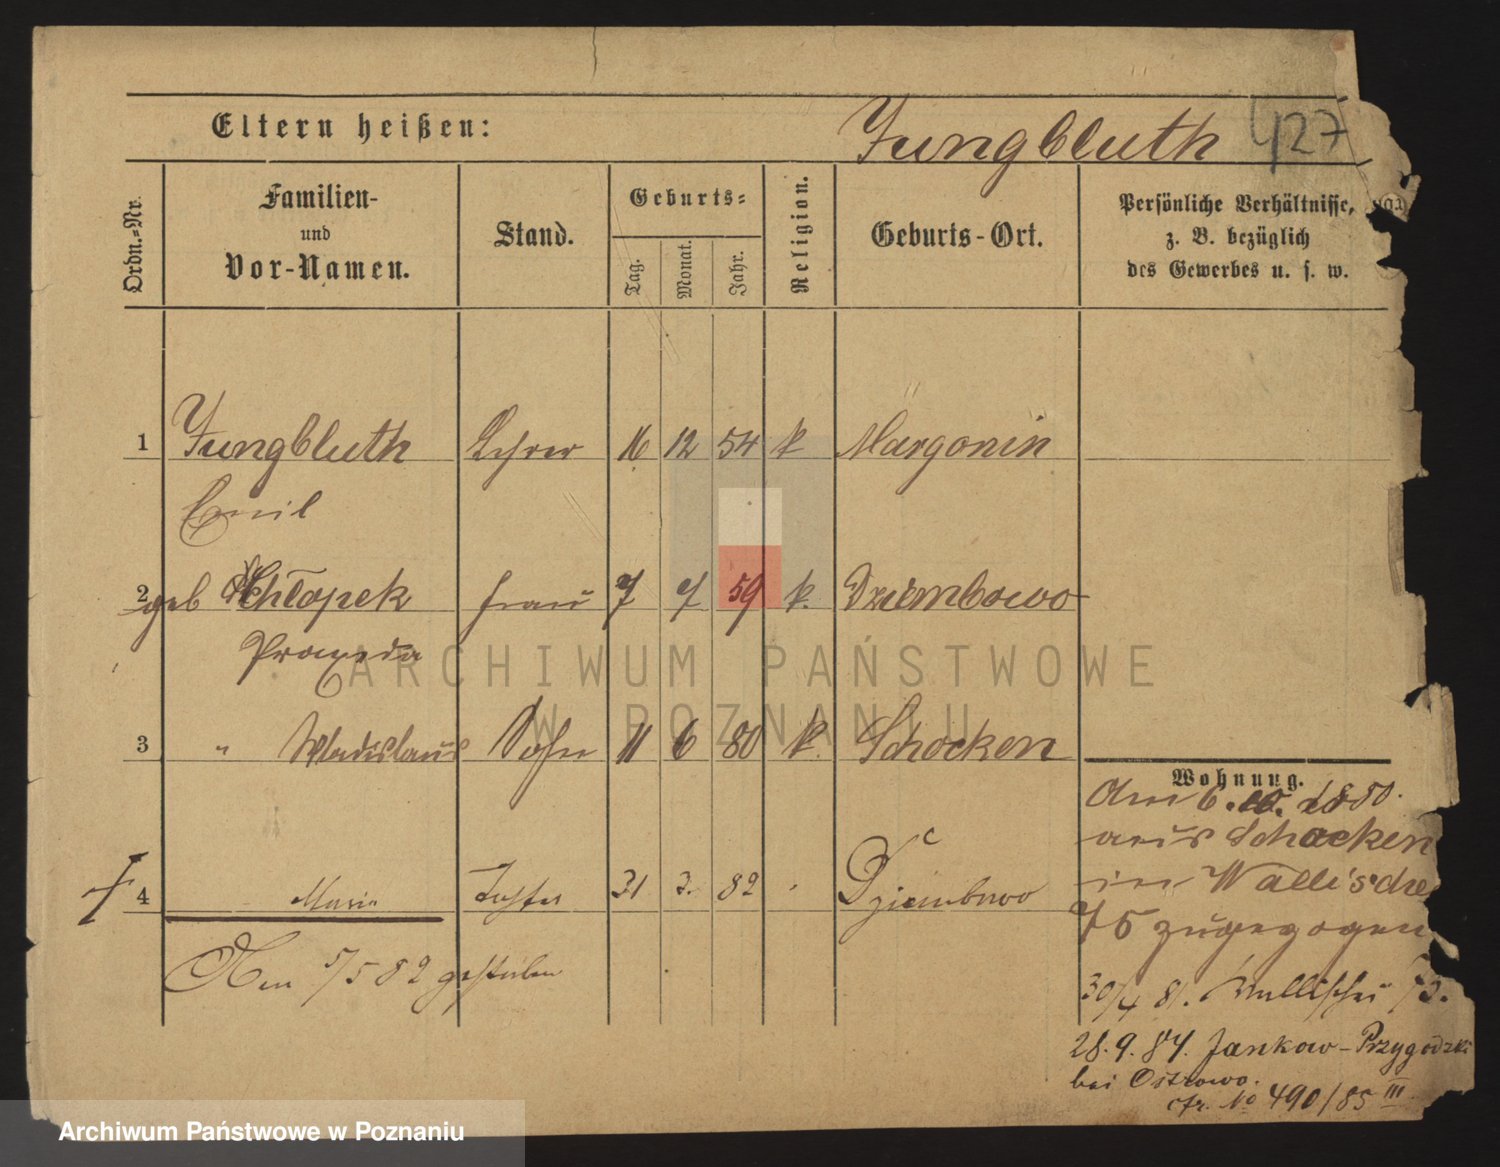 Eltern heißen: Jungbluth 427
Ordn.-Nr. Familien- und Vor-Namen. Stand. Geburts- Tag. Monat. Jahr. Religion. Geburts-Ort. Persönliche Verhältnisse, z. B. bezüglich des Gewerbes u. s. w.
1 Jungbluth Lehrer 16 12 54 k Margonin
Emil
2 geb Chłapek Frau 7 7 59 k. Dziembowo
Praxeda
3 " Wladislaus Sohn 11 6 80 k. Schocken
4 Maria Tochter 31 3. 82 Dziembowo
Am 5/5 82 gestorben
Wohnung.
Am 6. 10. 1880.
aus Schocken
in Wallischei
75 zugezogen
30/4 81. Wallischei 73.
28.9.84. Jankow-Przygodzki
bei Ostrowo.
cfr. No 490/85 III
ARCHIWUM PAŃSTWOWE
W POZNANIU
Archiwum Państwowe w Poznaniu